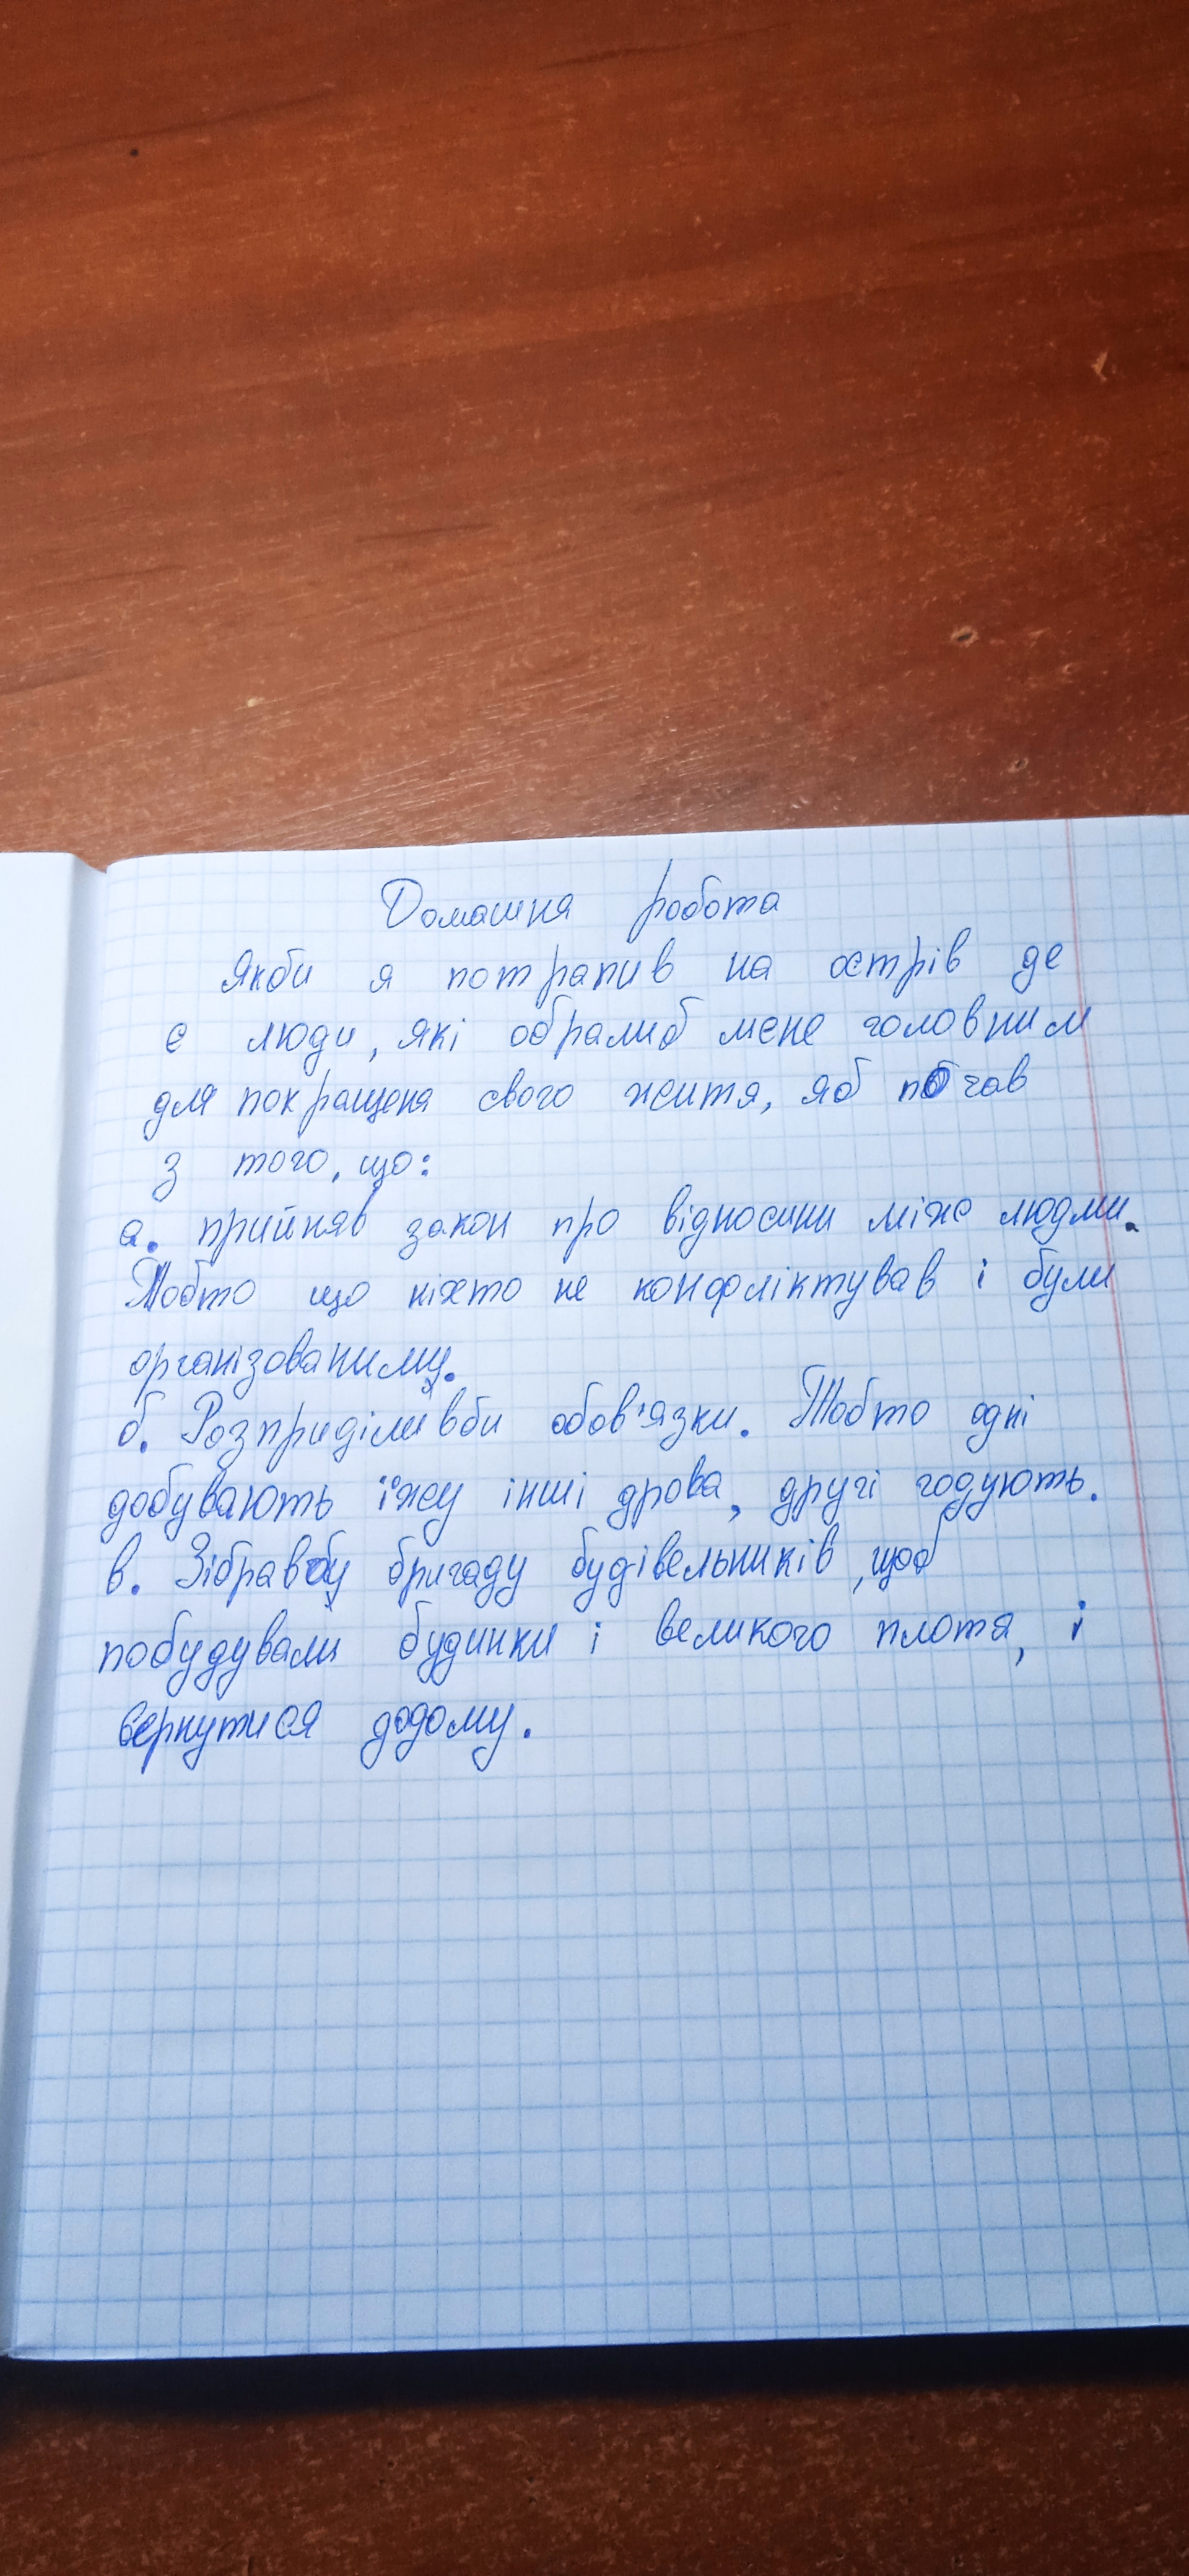 Домашня робота
Якби я потрапив на острів де
є люди, які обралиб мене головним
для покращеня свого життя, яб почав
з того, що:
а. прийняв закон про відносини між людми.
Тобто що ніхто не конфліктував і були
організованими.
б. Розприділивби обов'язки. Тобто одні
добувають їжу інші дрова, другі годують.
в. Зібравбу бригаду будівельників, щоб
побудували будинки і великого плотя, і
вернутися додому.